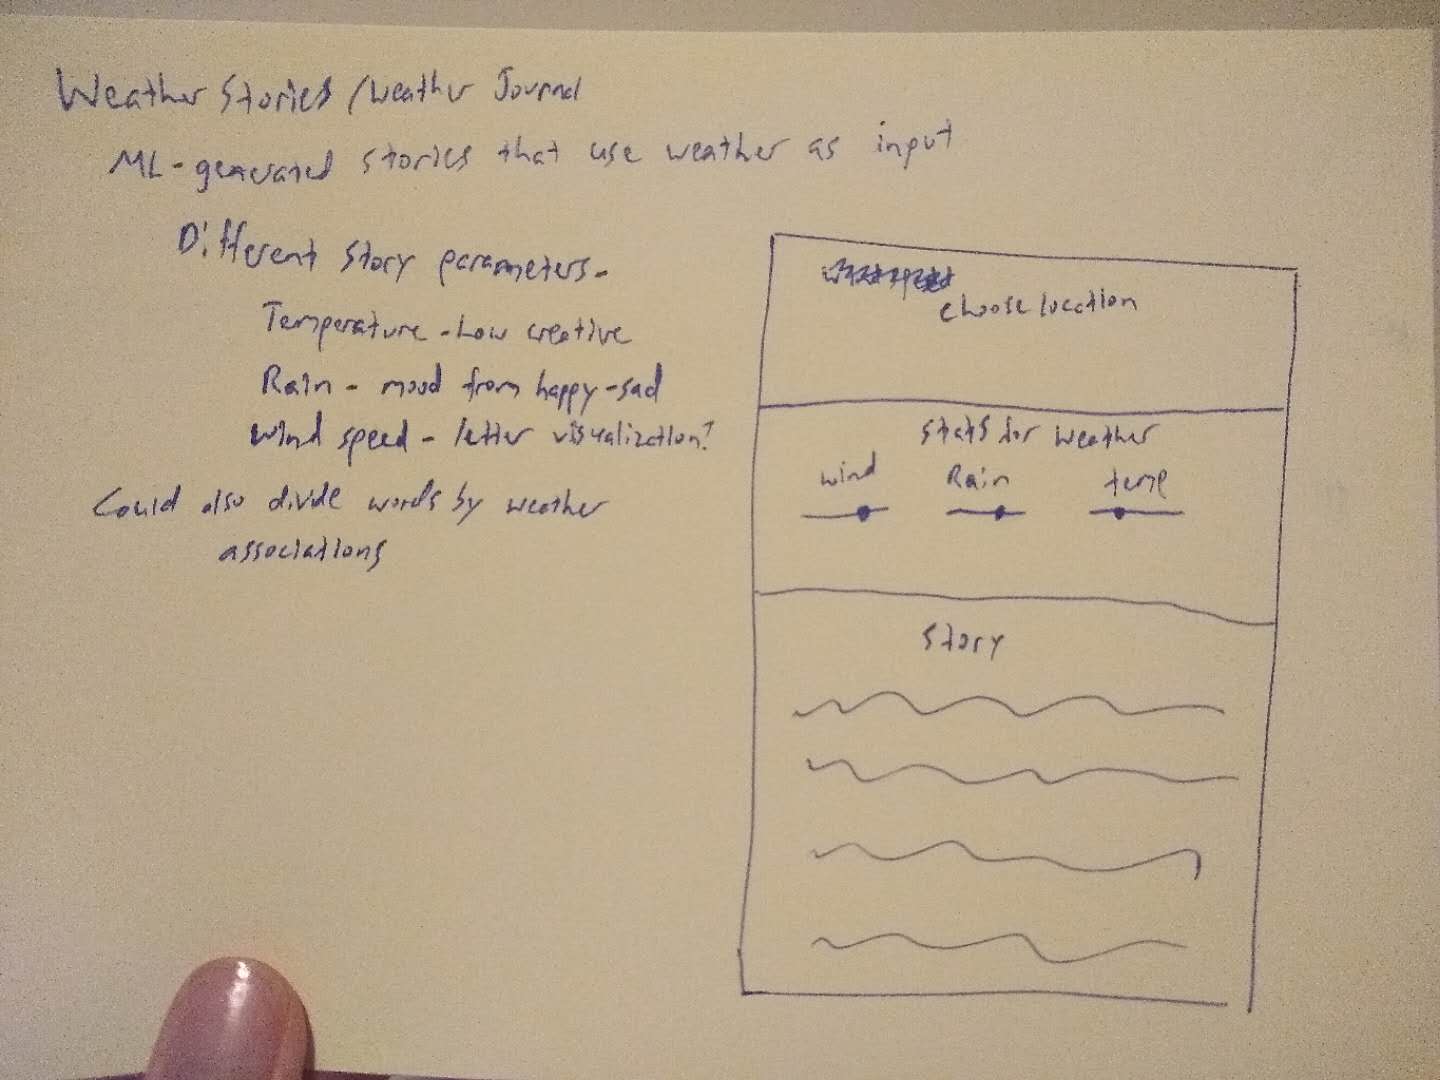 Weather Stories / Weather Journal
ML-generated stories that use weather as input
Different story parameters-
Temperature - how creative
Rain - mood from happy-sad
Wind speed - letter visualization?
Could also divide words by weather
associations
choose location
Stats for Weather
wind Rain temp
Story